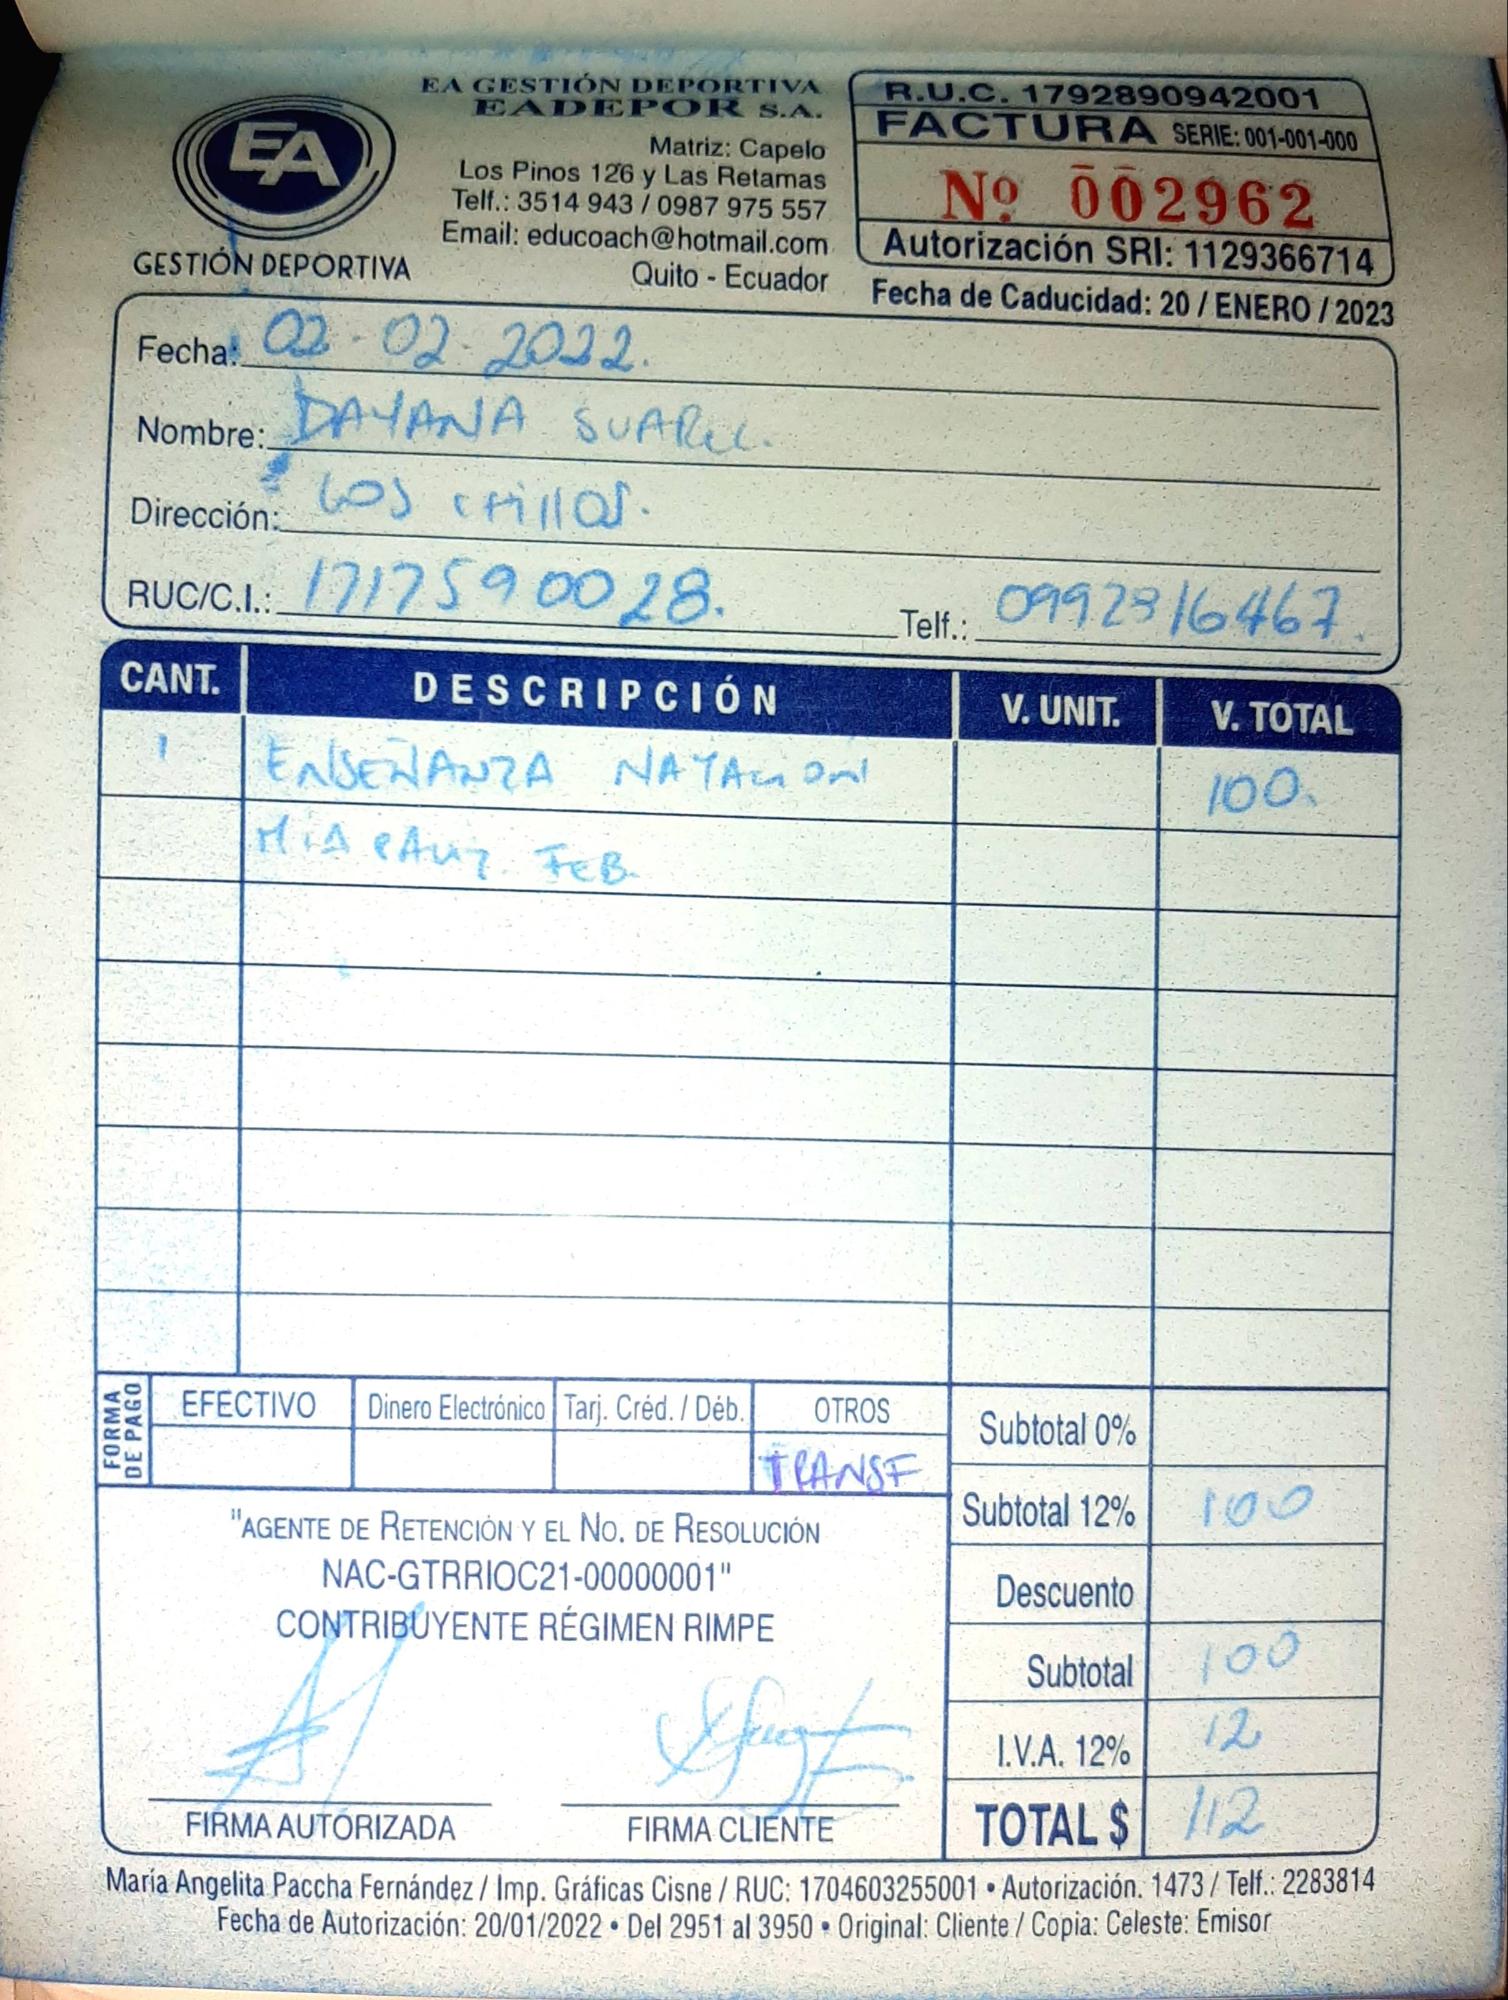 EA
GESTIÓN DEPORTIVA
EA GESTIÓN DEPORTIVA
EADEPOR S.A.
Matriz: Capelo
Los Pinos 126 y Las Retamas
Telf.: 3514 943 / 0987 975 557
Email: educoach@hotmail.com
Quito - Ecuador
R.U.C. 1792890942001
FACTURA SERIE: 001-001-000
Nº 002962
Autorización SRI: 1129366714
Fecha de Caducidad: 20 / ENERO / 2023
Fecha: 02-02-2022.
Nombre: DAYANA SUAREZ.
Dirección: LOS CHILLOS.
RUC/C.I.: 1717590028. Telf.: 0992816467.
CANT. DESCRIPCIÓN V. UNIT. V. TOTAL
1 ENSEÑANZA NATACION 100.
MIA FEB.
FORMA DE PAGO
EFECTIVO Dinero Electrónico Tarj. Créd. / Déb. OTROS
TRANSF
Subtotal 0%
Subtotal 12% 100
Descuento
Subtotal 100
I.V.A. 12% 12
TOTAL $ 112
"AGENTE DE RETENCIÓN Y EL NO. DE RESOLUCIÓN
NAC-GTRRIOC21-00000001"
CONTRIBUYENTE RÉGIMEN RIMPE
FIRMA AUTORIZADA FIRMA CLIENTE
María Angelita Paccha Fernández / Imp. Gráficas Cisne / RUC: 1704603255001 • Autorización. 1473 / Telf.: 2283814
Fecha de Autorización: 20/01/2022 • Del 2951 al 3950 • Original: Cliente / Copia: Celeste: Emisor